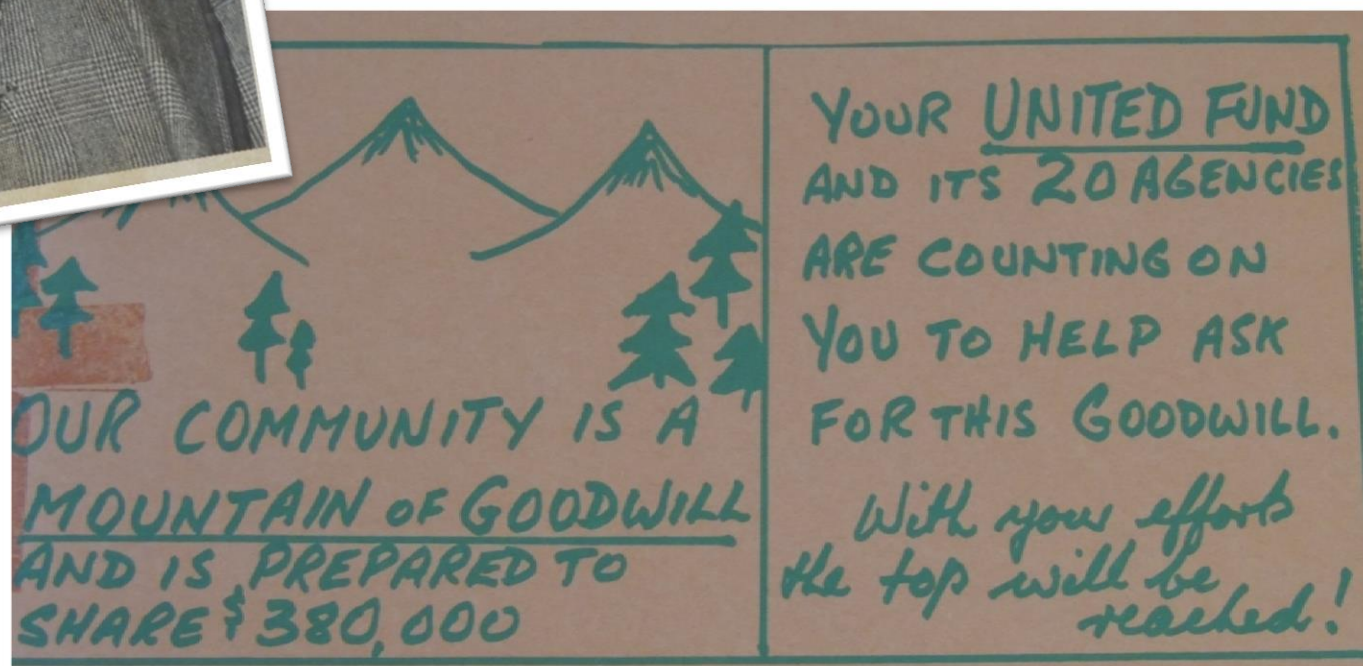 OUR COMMUNITY IS A
MOUNTAIN OF GOODWILL
AND IS PREPARED TO
SHARE $380,000
YOUR UNITED FUND
AND ITS 20 AGENCIES
ARE COUNTING ON
YOU TO HELP ASK
FOR THIS GOODWILL.
With your efforts
the top will be
reached!